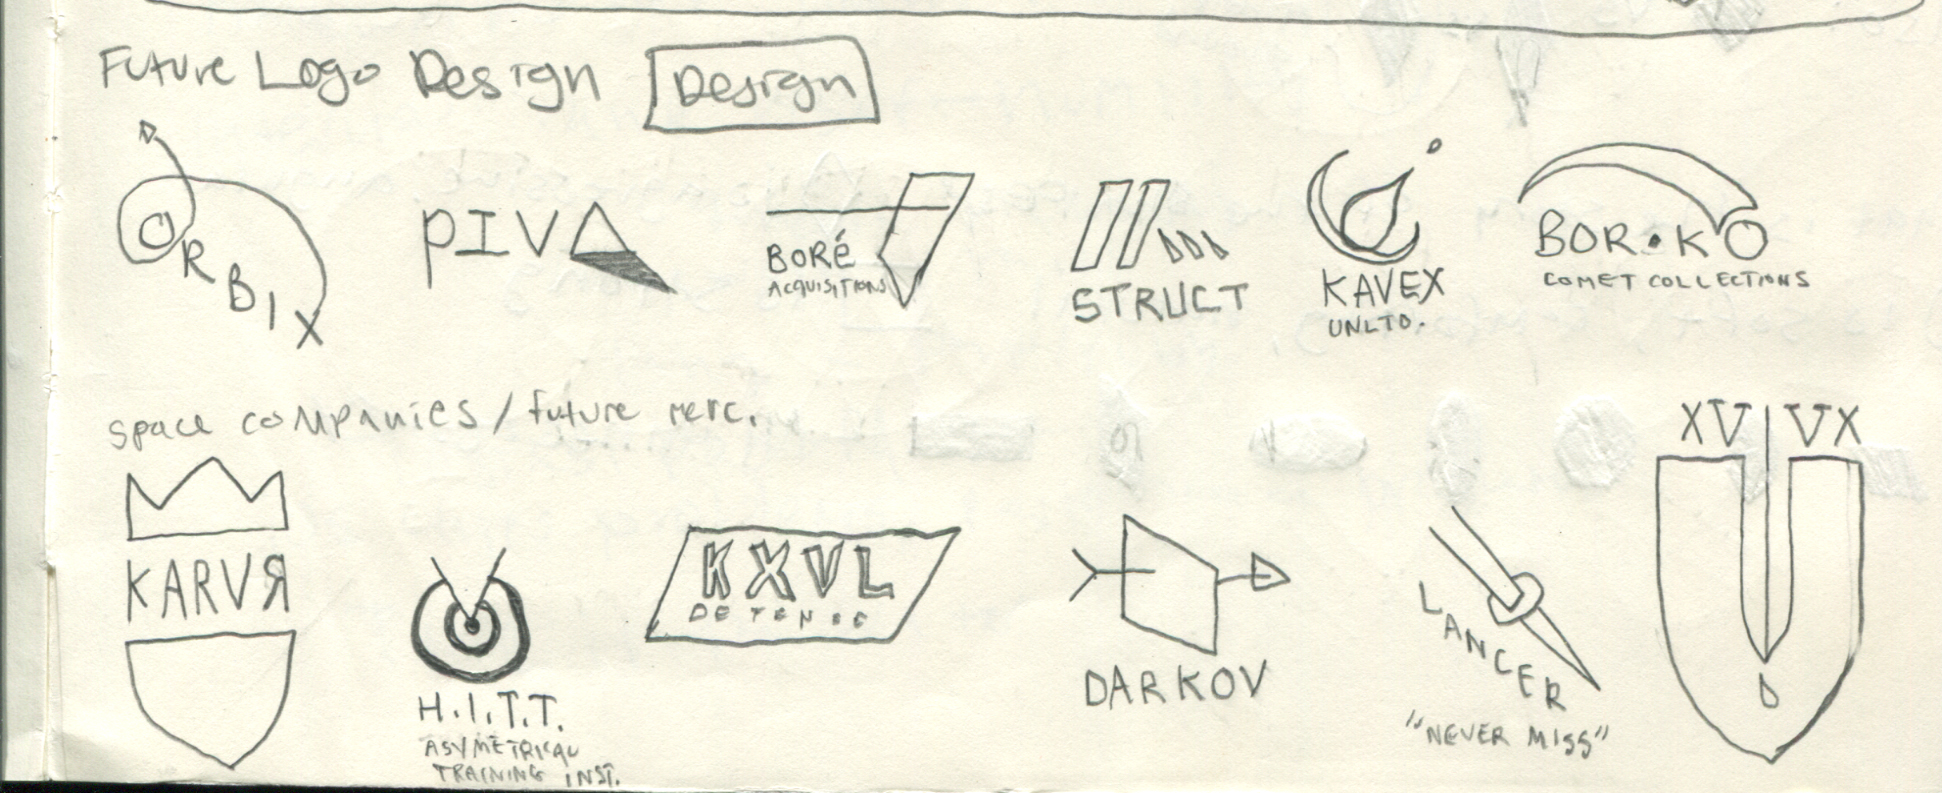 Future Logo Design Design
ORBIX
PIVA
BORé
ACQUISITIONS
STRUCT
KAVEX
UNLTD.
BOR•KO
COMET COLLECTIONS
space companies/future merc.
KARVЯ
H.I.T.T.
ASYMETRICAL
TRAINING INST.
KXVL
DEFENSE
DARKOV
LANCER
"NEVER MISS"
XV VX